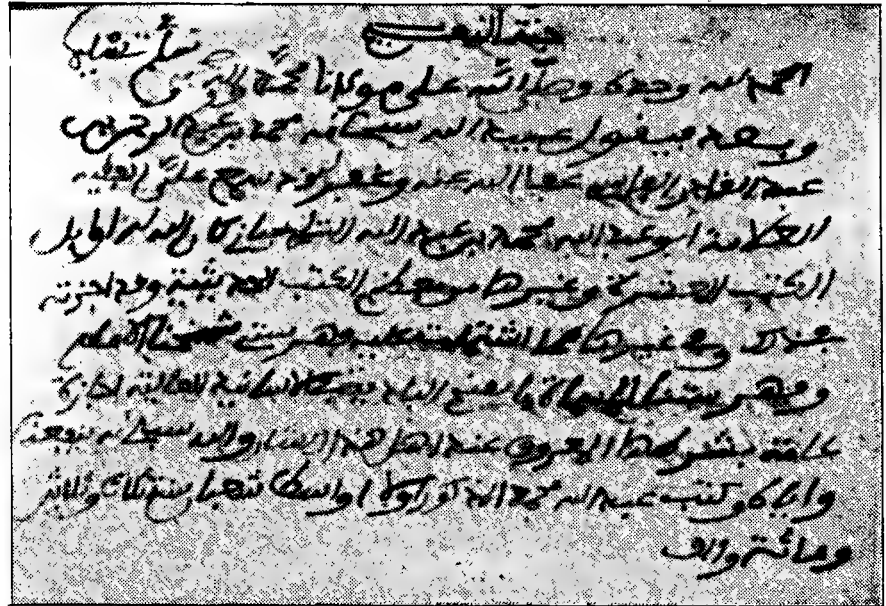 الحمد لله وحده وصلى الله على مولانا محمد وآله
وبعد فيقول عبيد الله سبحانه محمد بن عبد الرحمن
عبد القادر الفاسي عفا الله عنه وغفر له سمع علي الفقيه
العلامة أبو عبد الله محمد بن عبد الله أوايل
الكتب العشرة وغيرها من الكتب الحديثية وقد أجزته
في ذلك وفي غيرها مما اشتملت عليه فهرست شيخنا الإمام
وفهرستنا المسماة بالمنح البادية في الأسانيد العالية إجازة
عامة بشرطها المعروف عند أهل هذا الشأن والله سبحانه ينفعنا
وإياه وكتب عبيد الله محمد المذكور أولا أواسط شعبان سنة ثلاث وثلاثين
ومائة وألف